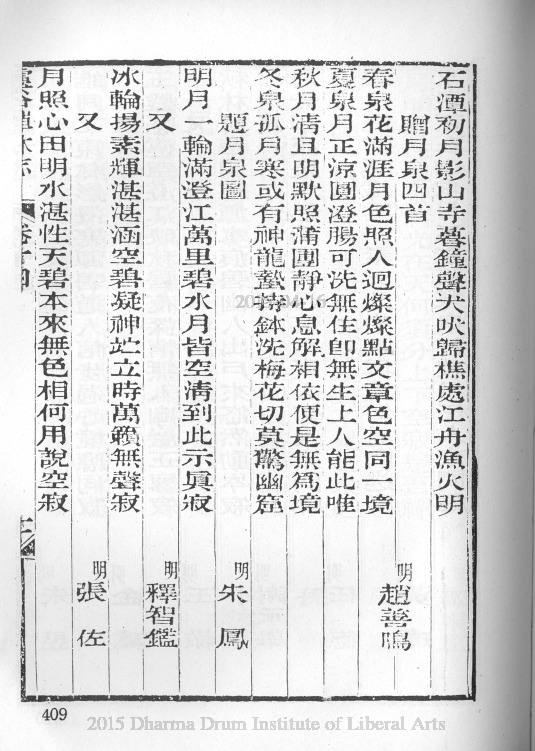 石潭初月影山寺暮鐘聲犬吠歸樵處江舟漁火明
贈月泉四首
明趙善鳴
春泉花滿涯月色照人迥燦燦點文章色空同一境
夏泉月正涼圓澄腸可洗無住卽無生上人能此唯
秋月清且明默照蒲團靜心息解相依便是無爲境
冬泉孤月寒或有神龍蟄持鉢洗梅花切莫驚幽窟
題月泉圖
明朱鳳
明月一輪滿澄江萬里碧水月皆空清到此示眞寂
又
明釋智鑑
冰輪揚素輝湛湛涵空碧凝神竚立時萬籟無聲寂
又
明張佐
月照心田明水湛性天碧本來無色相何用說空寂
卷十四
十一
409
2015 Dharma Drum Institute of Liberal Arts